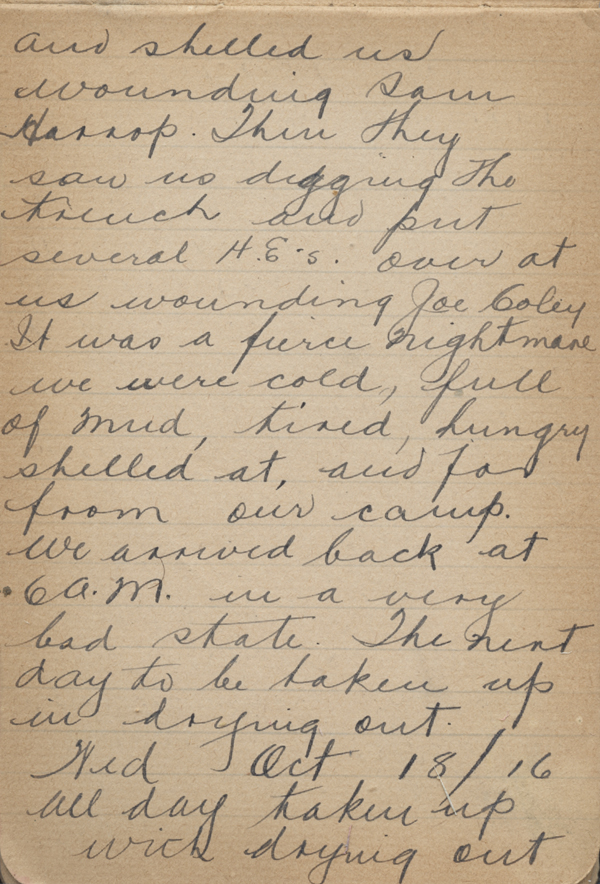 and shelled us
wounding Sam
Harrop. Then they
saw us digging the
trench and put
several H.E-s. over at
us wounding Joe Coley
It was a fierce nightmare
we were cold, full
of mud, tired, hungry
shelled at, and far
from our camp.
We arrived back at
6 A.M. in a very
bad state. The next
day to be taken up
in drying out.
Wed Oct 18/16
All day taken up
with drying out